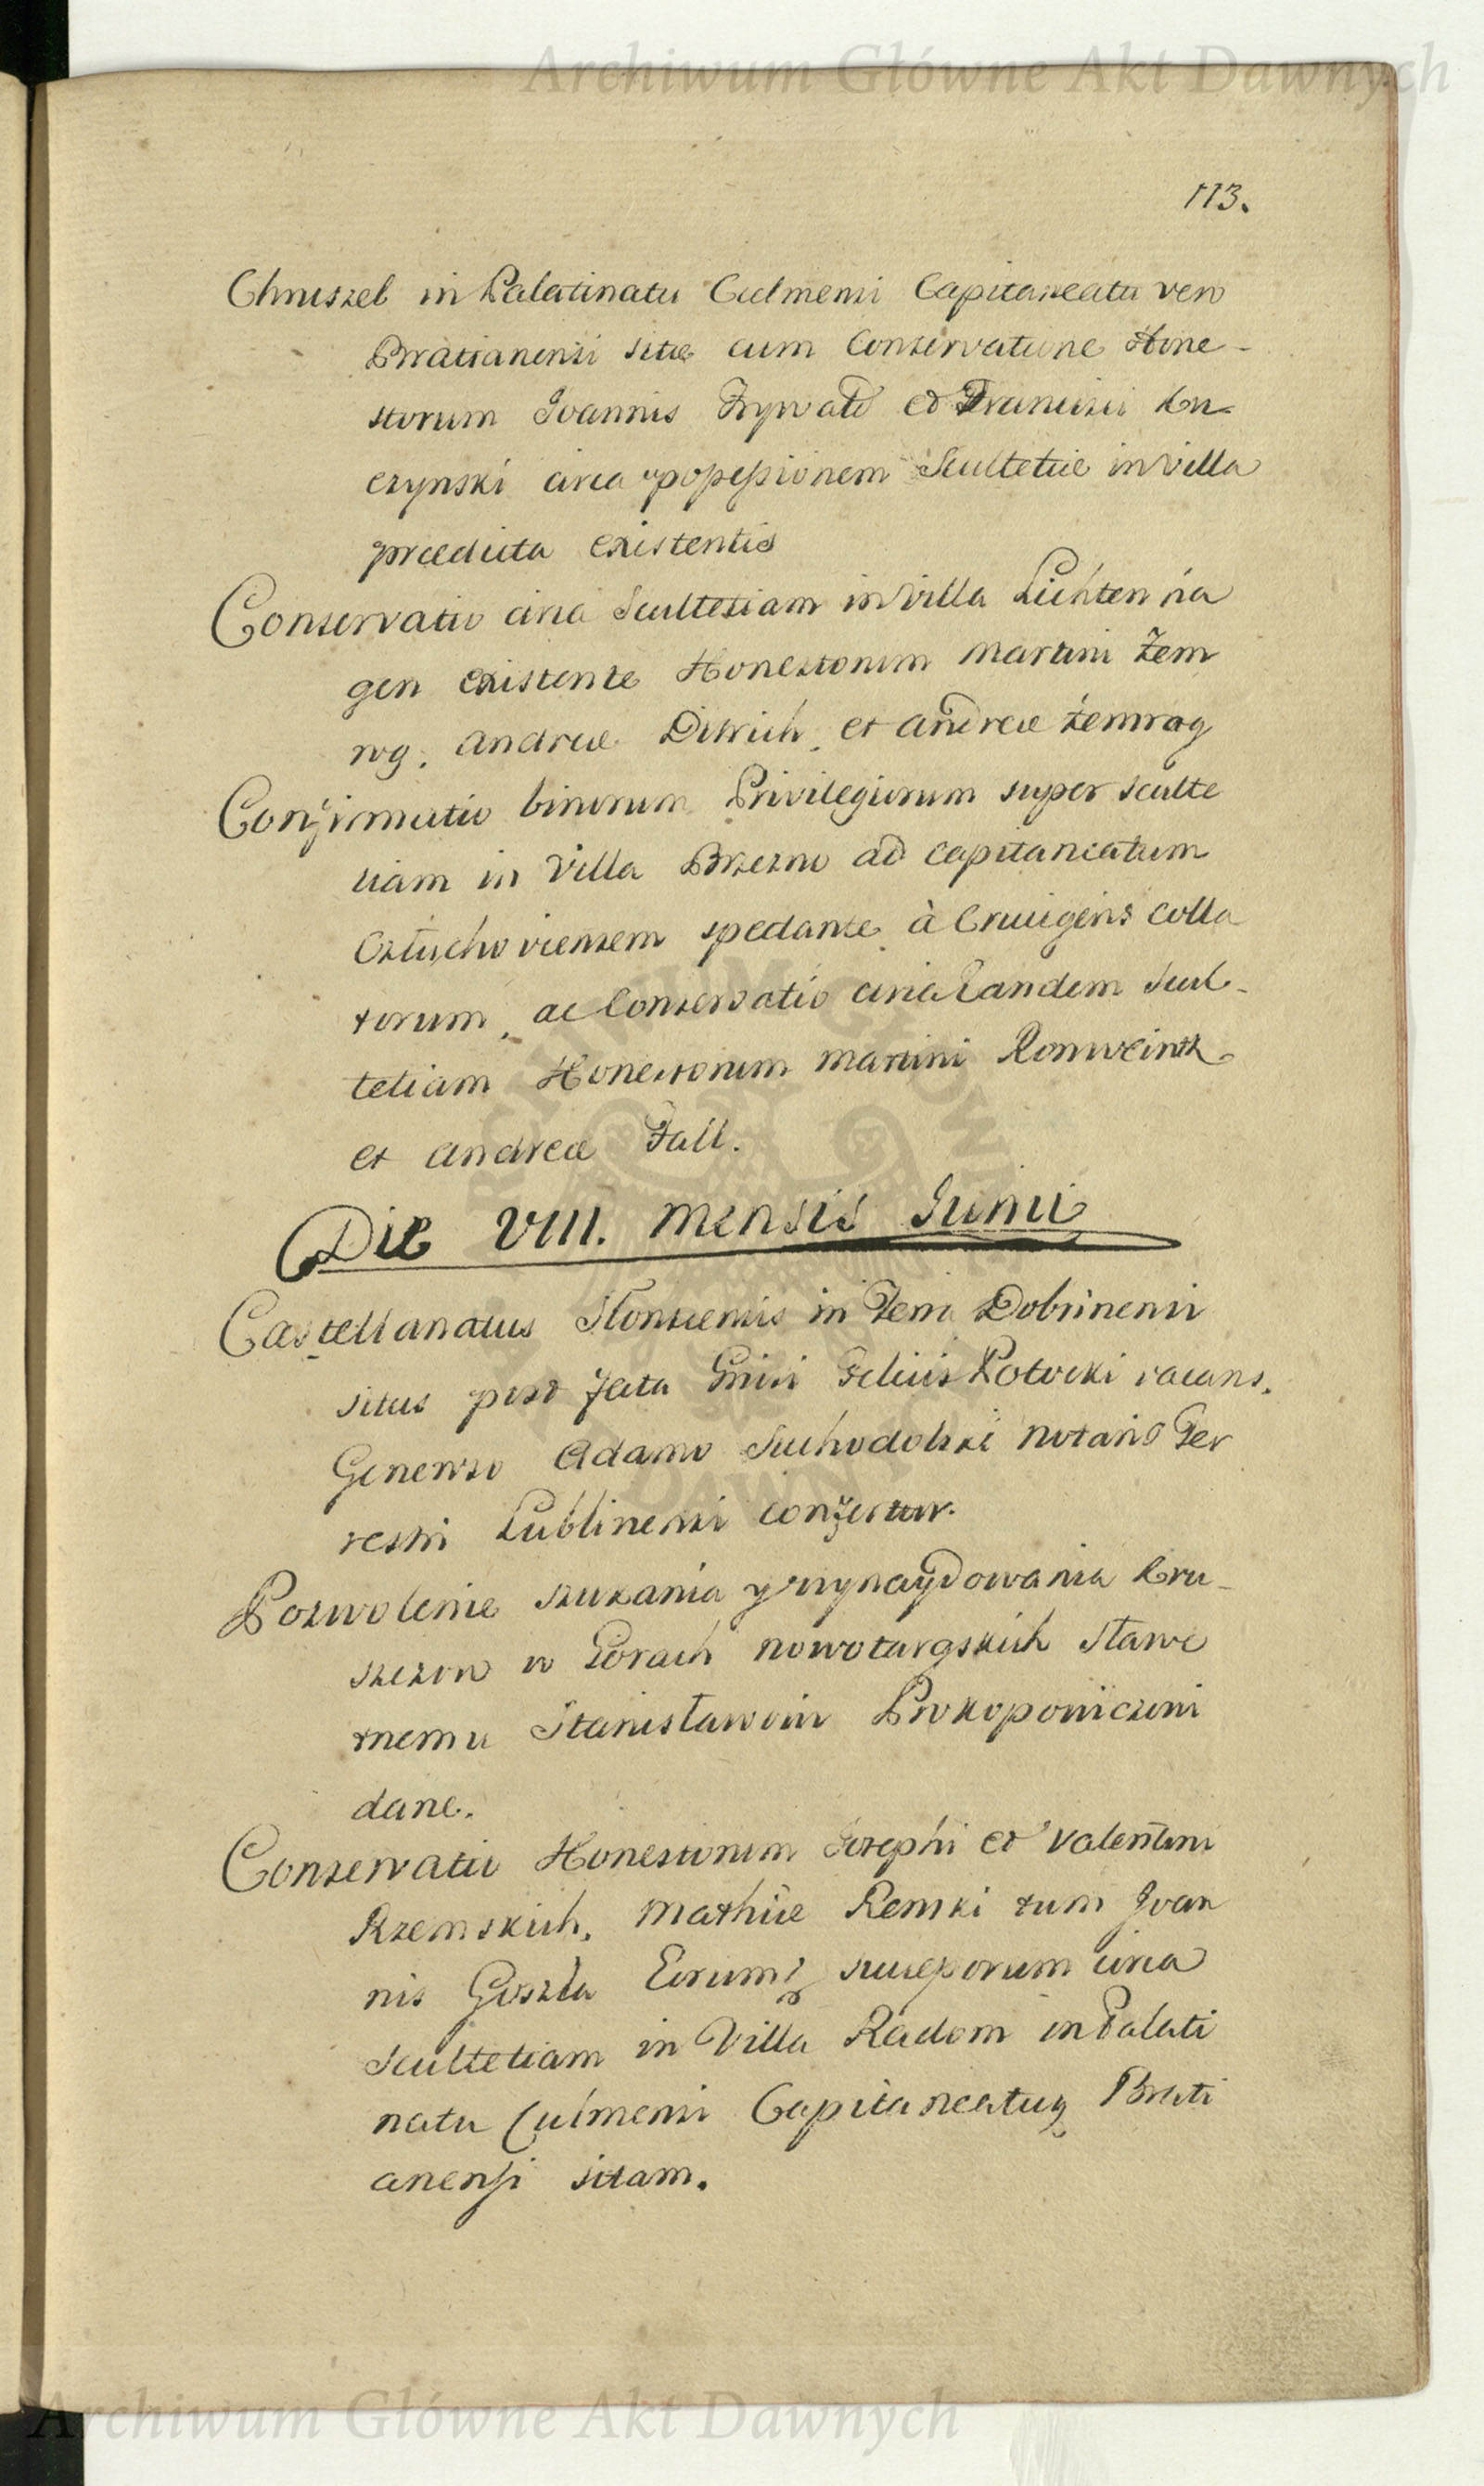 Archiwum Główne Akt Dawnych
113.
Chruszel in Palatinatu Culmensi Capitaneatu vero
Bratianensi sitæ cum Conservatione Hone-
storum Joannis Frywald et Francisci Ku-
czynski circa possessionem Scultetiæ in villa
prædicta existentis
Conservatio circa Scultetiam in villa Lichtenha
gen existente Honestorum Martini Zem
rog, Andreæ Ditrich, et Andreæ Zemrog
Confirmatio binorum Privilegiorum super Sculte
tiam in Villa Brzezno ad Capitaneatum
Człuchoviensem spectante à Crucigeris colla
torum, ac Conservatio circa eandem Scul-
tetiam Honestorum Martini
et Andreæ Fall.
Die VIII. Mensis Junii
Castellanatus Słonscensis in Terra Dobrinensi
situs post fata Felicis Potocki vacans,
Generoso Adamo Suchodolski Notario Ter
restri Lublinensi confertur.
Pozwolenie szukania y wynaydowania Kru-
szczow w Gorach Nowotargskich Sławe
tnemu Stanisławowi Prokopowiczowi
dane.
Conservatio Honestorum Josephi et Valentini
Rzemskich, Mathiæ Remski tum Joan
nis Goszla Eorumq successorum circa
Scultetiam in Villa Radom in Palati
natu Culmensi Capitaneatuq Brati
anensi sitam.
Archiwum Główne Akt Dawnych